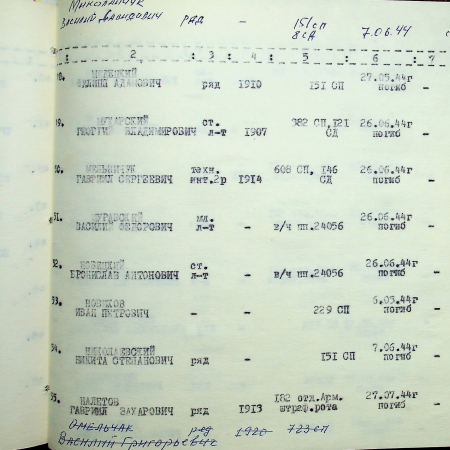 Миколайчук
Василий Давидович ряд – 151сп 8сд 7.06.44
: 2 : 3 : 4 : 5 : 6 : 7
МИЛЕЦКИЙ 27.05.44г
ФИЛИПП АДАМОВИЧ ряд 1910 151 СП погиб –
49. МУХАРСКИЙ ст. 382 СП,121 26.06.44г
ГЕОРГИЙ ВЛАДИМИРОВИЧ л-т 1907 СД погиб –
50. МЕЛЬНИЧУК техн. 608 СП, 146 26.06.44г
ГАВРИИЛ СЕРГЕЕВИЧ инт.2р 1914 СД погиб –
51. МУРАВСКИЙ мл. 26.06.44г
ВАСИЛИЙ ФЕДОРОВИЧ л-т – в/ч пп.24056 погиб –
52. НОВИЦКИЙ ст. 26.06.44г
БРОНИСЛАВ АНТОНОВИЧ л-т – в/ч пп.24056 погиб –
53. НОВИКОВ 6.03.44г
ИВАН ПЕТРОВИЧ – – 229 СП погиб –
54. НИКОЛАЕВСКИЙ 7.06.44г
НИКИТА СТЕПАНОВИЧ ряд – 151 СП погиб –
55. НАЛЕТОВ 182 отд.Арм. 27.07.44г
ГАВРИИЛ ЗАХАРОВИЧ ряд 1913 штраф.рота погиб –
Омельчак ряд 1920 723сп
Василий Григорьевич